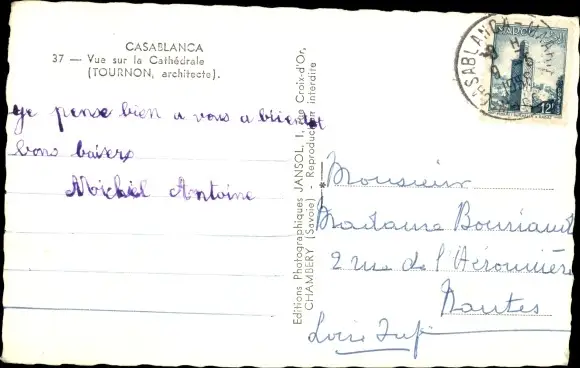 CASABLANCA
37 — Vue sur la Cathédrale
(TOURNON, architecte).
je pense bien a vous a bientot
bons baisers
Michiel Antoine
Editions Photographiques JANSOL, 1, Croix-d'Or,
CHAMBERY (Savoie) - Reproduction interdite
CASABLANCA
MAROC
12F
Monsieur
Madame Bouriaud
2 rue de l'Aéronnière
Nantes
Loire Infre